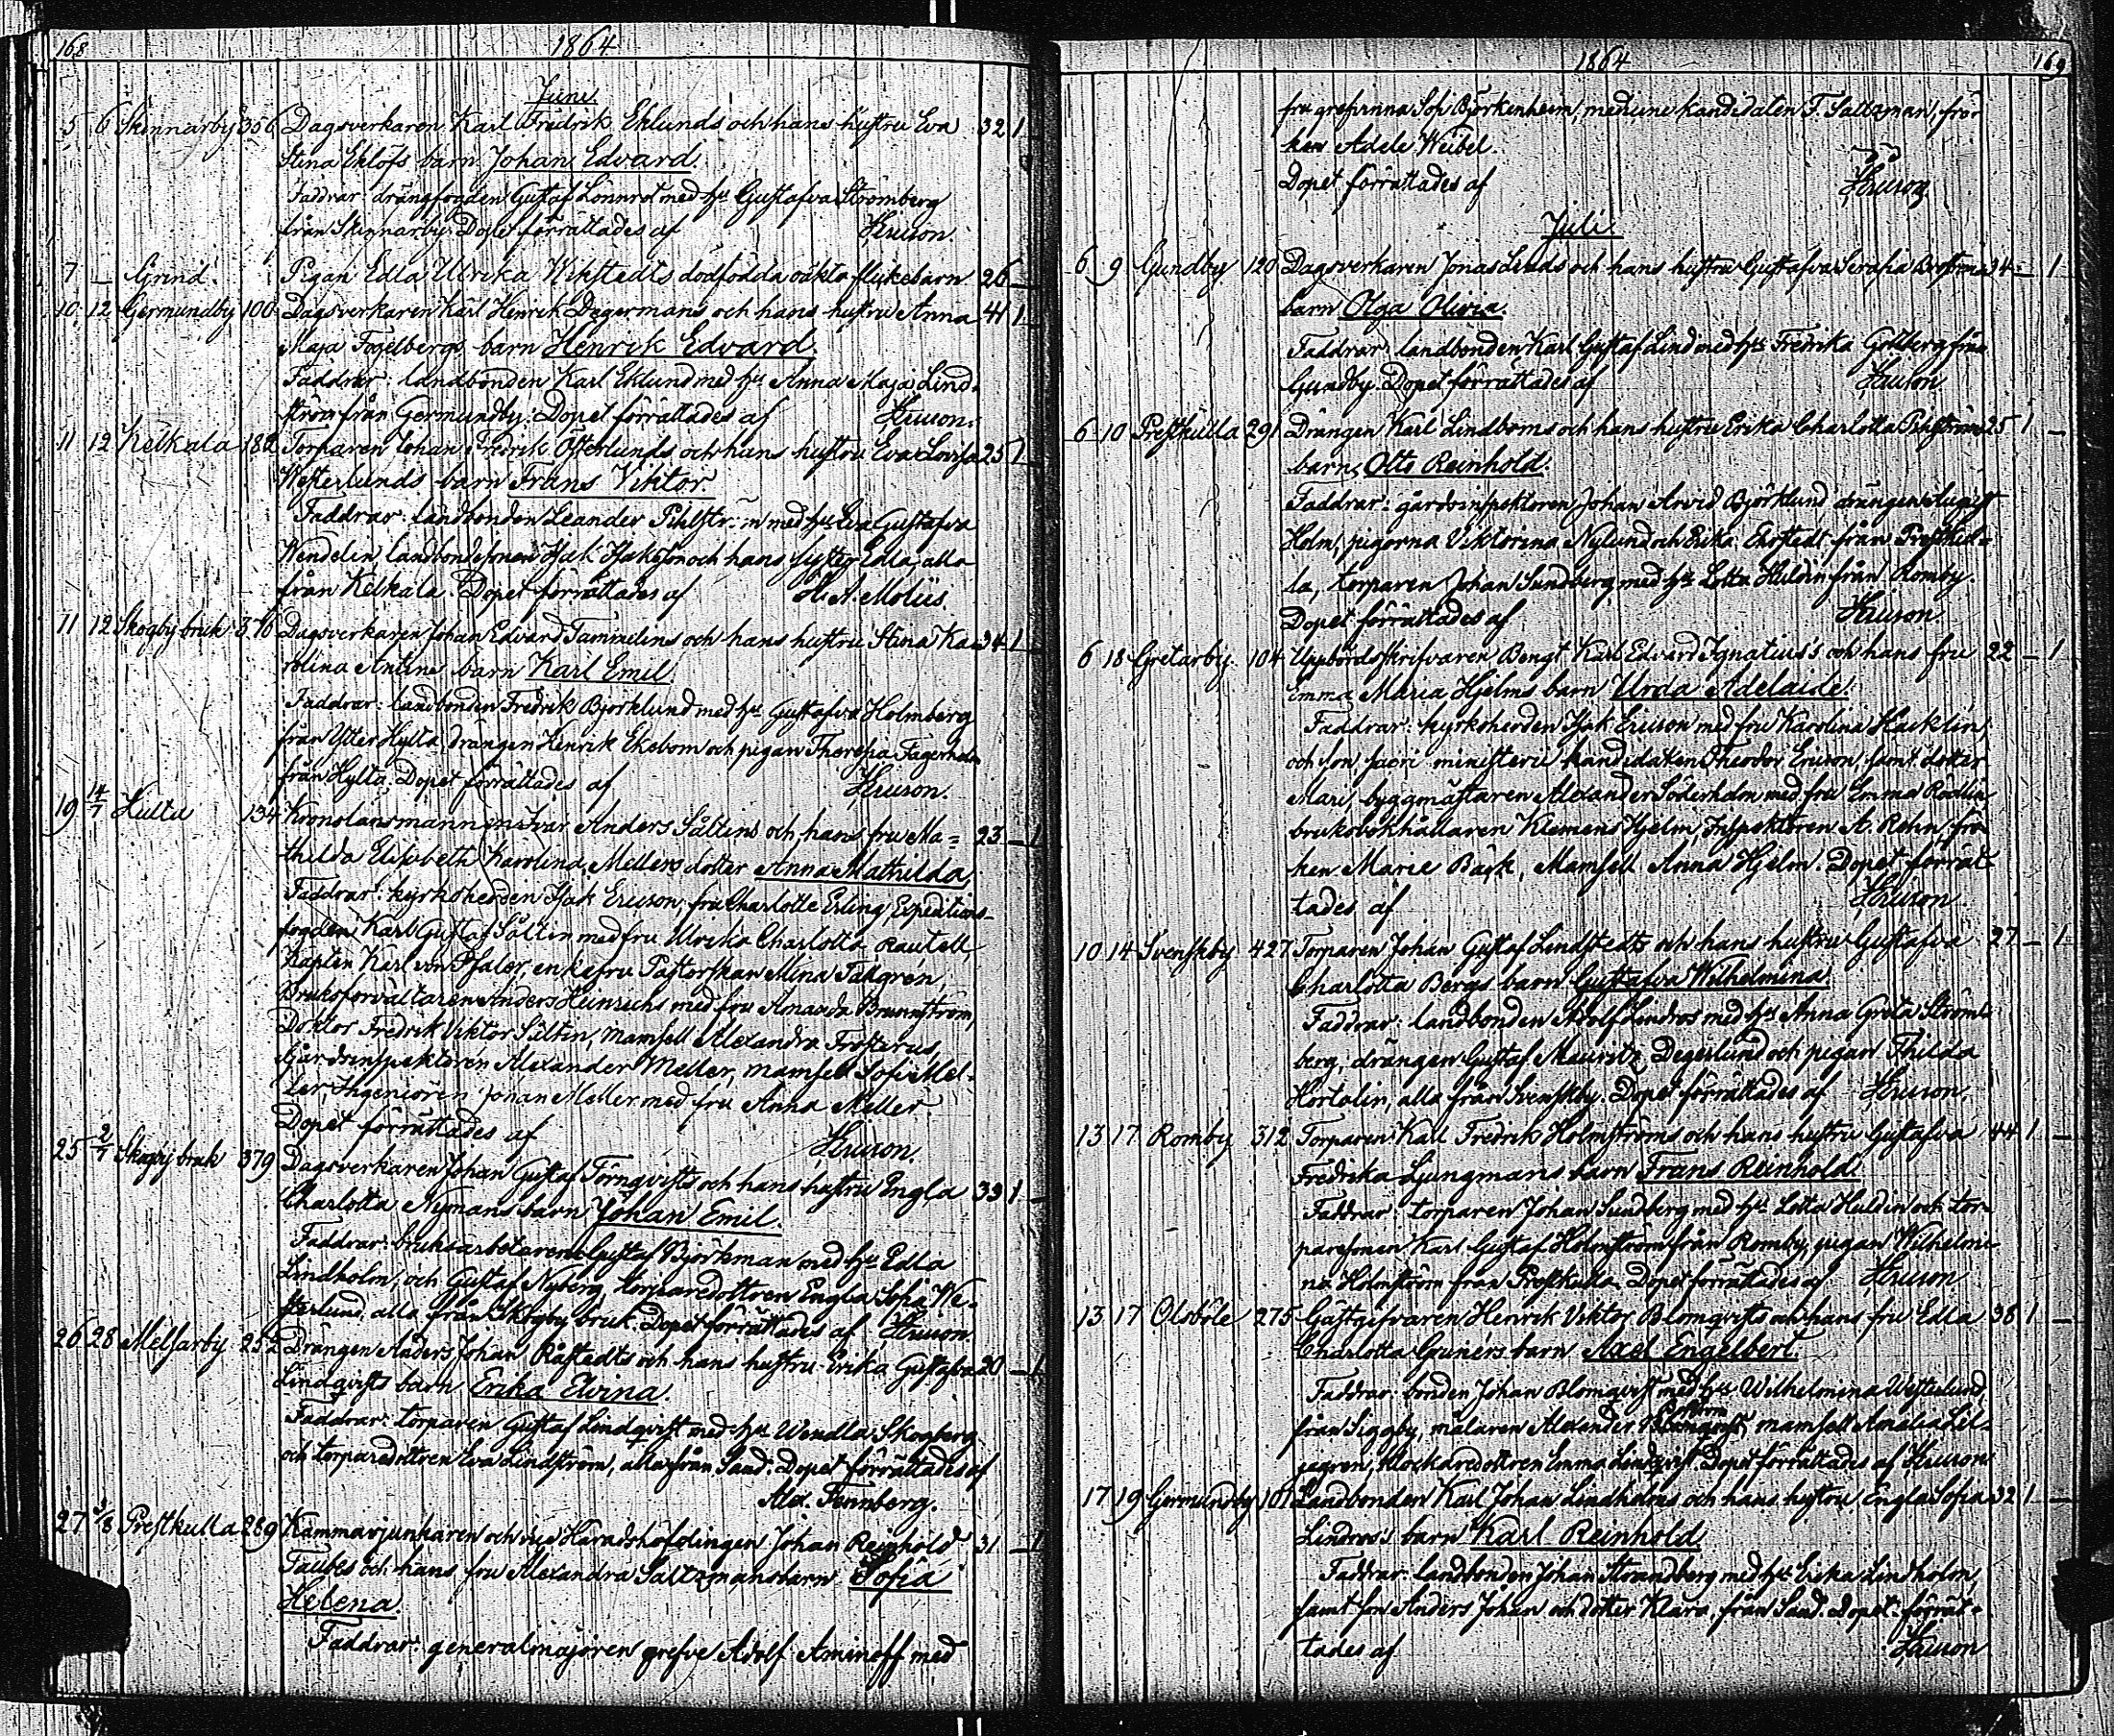 168
1864
Juni.
5 6 Skinnarby 356 Dagsverkaren Karl Fredrik Eklunds och hans hustru Eva 32 1 _
Stina Eklöfs barn Johan Edvard.
Faddrar: drängfogden Gustaf Lönnrot med h:u Gustafva Strömberg
från Skinnarby. Dopet förrättades af Ericson.
7 _ Grind. Pigan Edla Ulrika Wikstedts dödfödda oäkta flickebarn 26 _
10 12 Germundby 100 Dagsverkaren Karl Henrik Degermans och hans hustru Anna 41 1 _
Maja Fogelbergs barn Henrik Edvard.
Faddrar: landbonden Karl Eklund med h:u Anna Maja Lind-
ström från Germundby. Dopet förrättades af Ericson.
11 12 Kelkala 182 Torparen Johan Fredrik Österlunds och hans hustru Eva Lovisa 25 1 _
Westerlunds barn Frans Viktor
Faddrar: landbonden Leander Pihlström med h:u Eva Gustafva
Wendelin, landbondesonen Isak Isaksson och hans syster Edla, alla
från Kelkala. Dopet förrättades af A. Moliis.
11 12 Skogby bruk 376 Dagsverkaren Johan Edvard Tammelins och hans hustru Stina Ka- 34 1 _
rolina Antins barn Karl Emil.
Faddrar: landbonden Fredrik Björklund med h:u Gustafva Holmberg
från Ytter Hylta, drängen Henrik Ekebom och pigan Theresia
från Hylta. Dopet förrättades af Ericson.
19 14/7 Hulta 134 Kronolänsmannen Ivar Anders Sältins och hans fru Ma- 23 _ 1
thilda Elisabeth Karolina Mellers dotter Anna Mathilda.
Faddrar: kyrkoherden Isak Ericson, fru Charlotte Erling, Expeditions-
fogden Karl Gustaf Sältin med fru Ulrika Charlotta Rautell,
Kapten Karl von Pfaler, enkefru Pastorskan Mina Takgren,
Bruksförvaltaren Anders Heinrichs med fru Amanda Brunnström,
Doktor Fredrik Viktor Sältin, mamsell Alexandra Frosterus,
Gårdsinspektoren Alexander Meller, mamsell Sofi Mel-
ler, Ingeniören Johan Meller med fru Anna Meller.
Dopet förrättades af Ericson.
25 2/7 Skogby bruk 379 Dagsverkaren Johan Gustaf Törnqvists och hans hustru Engla 33 1 _
Charlotta Nymans barn Johan Emil.
Faddrar: bruksarbetarene Gustaf Björkman med h:u Edla
Lindholm, och Gustaf Nyberg, torparedottren Engla Sofia We-
sterlund, alla från Skogby bruk. Dopet förrättades af Ericson.
26 28 Melsarby 252 Drängen Anders Johan Råstedts och hans hustru Erika Gustafva 20 _ 1
Lindqvists barn Erika Elvina.
Faddrar: torparen Gustaf Lindqvist med h:u Wendla Skogberg
och torparedottren Eva Lindström, alla från Sand. Dopet förrättades af
Alex. Fennberg.
27 3/8 Prestkulla 289 Kammarjunkaren och vice Häradshöfdingen Johan Reinhold 31 _ 1
Taubes och hans fru Alexandra Saltzmans barn Sofia
Helena.
Faddrar: generalmajoren grefve Adolf Aminoff med
1864
169
fru grefvinna Sofi Björkenheim, medicine kandidaten F. Saltzman, frö-
ken Adele Weibel.
Dopet förrättades af Ericson
Juli.
6 9 Gundby 120 Dagsverkaren Jonas Linds och hans hustru Gustafva Serafia 34 _ 1
barn Olga Olivia.
Faddrar: landbonden Karl Gustaf Lind med h:u Fredrika från
Gundby. Dopet förrättades af Ericson
6 10 Prestkulla 291 Drängen Karl Lindboms och hans hustru Erika Charlotta 25 1 _
barn Otto Reinhold.
Faddrar: gårdsinspektoren Johan Arvid Björklund, drängen August
Holm, pigorna Viktorina Nylund och Erika Ekstedt från Prestkul-
la, torparen Johan Sundberg med h:u Lotta Huldin från Romby.
Dopet förrättades af Ericson
6 18 Gretarby 104 Uppbördsskrifvaren Bengt Karl Edvard Ignatius's och hans fru 22 _ 1
Emma Maria Hjelms barn Urda Adelaide.
Faddrar: kyrkoherden Isak Ericson med fru Karolina Hacklin,
och son, sacri ministerii kandidaten Theodor Ericson, samt dotter
Mari, byggmästaren Alexander Söderholm med fru Emma Rodlin,
bruksbokhållaren Klemens Hjelm, Inspektoren A. Rehn, frö-
ken Marie Bäck, Mamsell Anna Hjelm. Dopet förrät-
tades af Ericson
10 14 Svenskby 427 Torparen Johan Gustaf Lindstedts och hans hustru Gustafva 27 _ 1
Charlotta Bergs barn Gustafva Wilhelmina
Faddrar: landbonden Adolf Lindros med h:u Anna Greta Ström-
berg, drängen Gustaf Mauritz Degerlund och pigan Thilda
Hortalin, alla från Svenskby. Dopet förrättades af Ericson.
13 17 Romby 312 Torparen Karl Fredrik Holmströms och hans hustru Gustafva 44 1 _
Fredrika Ljungmans barn Frans Reinhold.
Faddrar: torparen Johan Sundberg med h:u Lotta Huldin och tor-
paresonen Karl Gustaf Holmström från Romby, pigan Wilhelmi-
na Holmström från Prestkulla. Dopet förrättades af Ericson
13 17 Olsböle 275 Gästgifvaren Henrik Viktor Blomqvists och hans fru Edla 38 1 _
Charlotta Grunérs barn Axel Engelbert.
Faddrar: bonden Johan Blomqvist med h:u Wilhelmina Westerlund
från Siggby, målaren Alexander mamsell Amalia Lil-
jegren, klockaredottren Emma Lindqvist. Dopet förrättades af Ericson
17 19 Germundby 101 Landbonden Karl Johan Lindholms och hans hustru Engla Sofia 32 1 _
Lindros's barn Karl Reinhold.
Faddrar: landbonden Johan Strandberg med h:u Erika Lindholm,
samt son Anders Johan och dotter Klara från Sand. Dopet förrät-
tades af Ericson